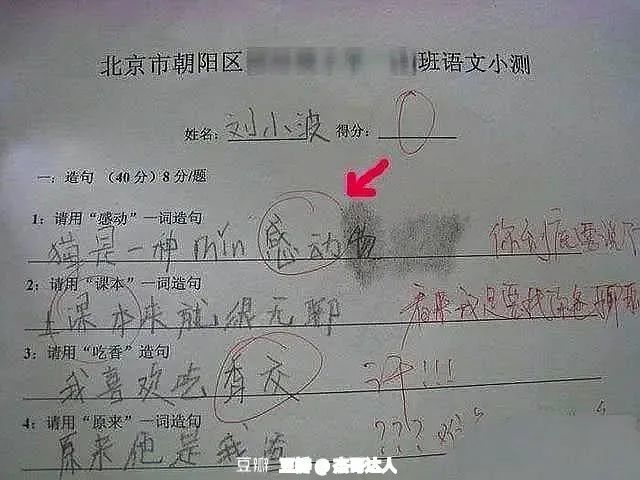 北京市朝阳区 班语文小测
姓名: 刘小波 得分: 0
一: 造句 (40分) 8分/题
1: 请用“感动”一词造句
猫是一种min感动物 你到底要说
2: 请用“课本”一词造句
上课本来就很无聊 看来我是要找你爸聊聊
3: 请用“吃香”造句
我喜欢吃香蕉 汗!!!
4: 请用“原来”一词造句
原来他是我 ???
豆瓣